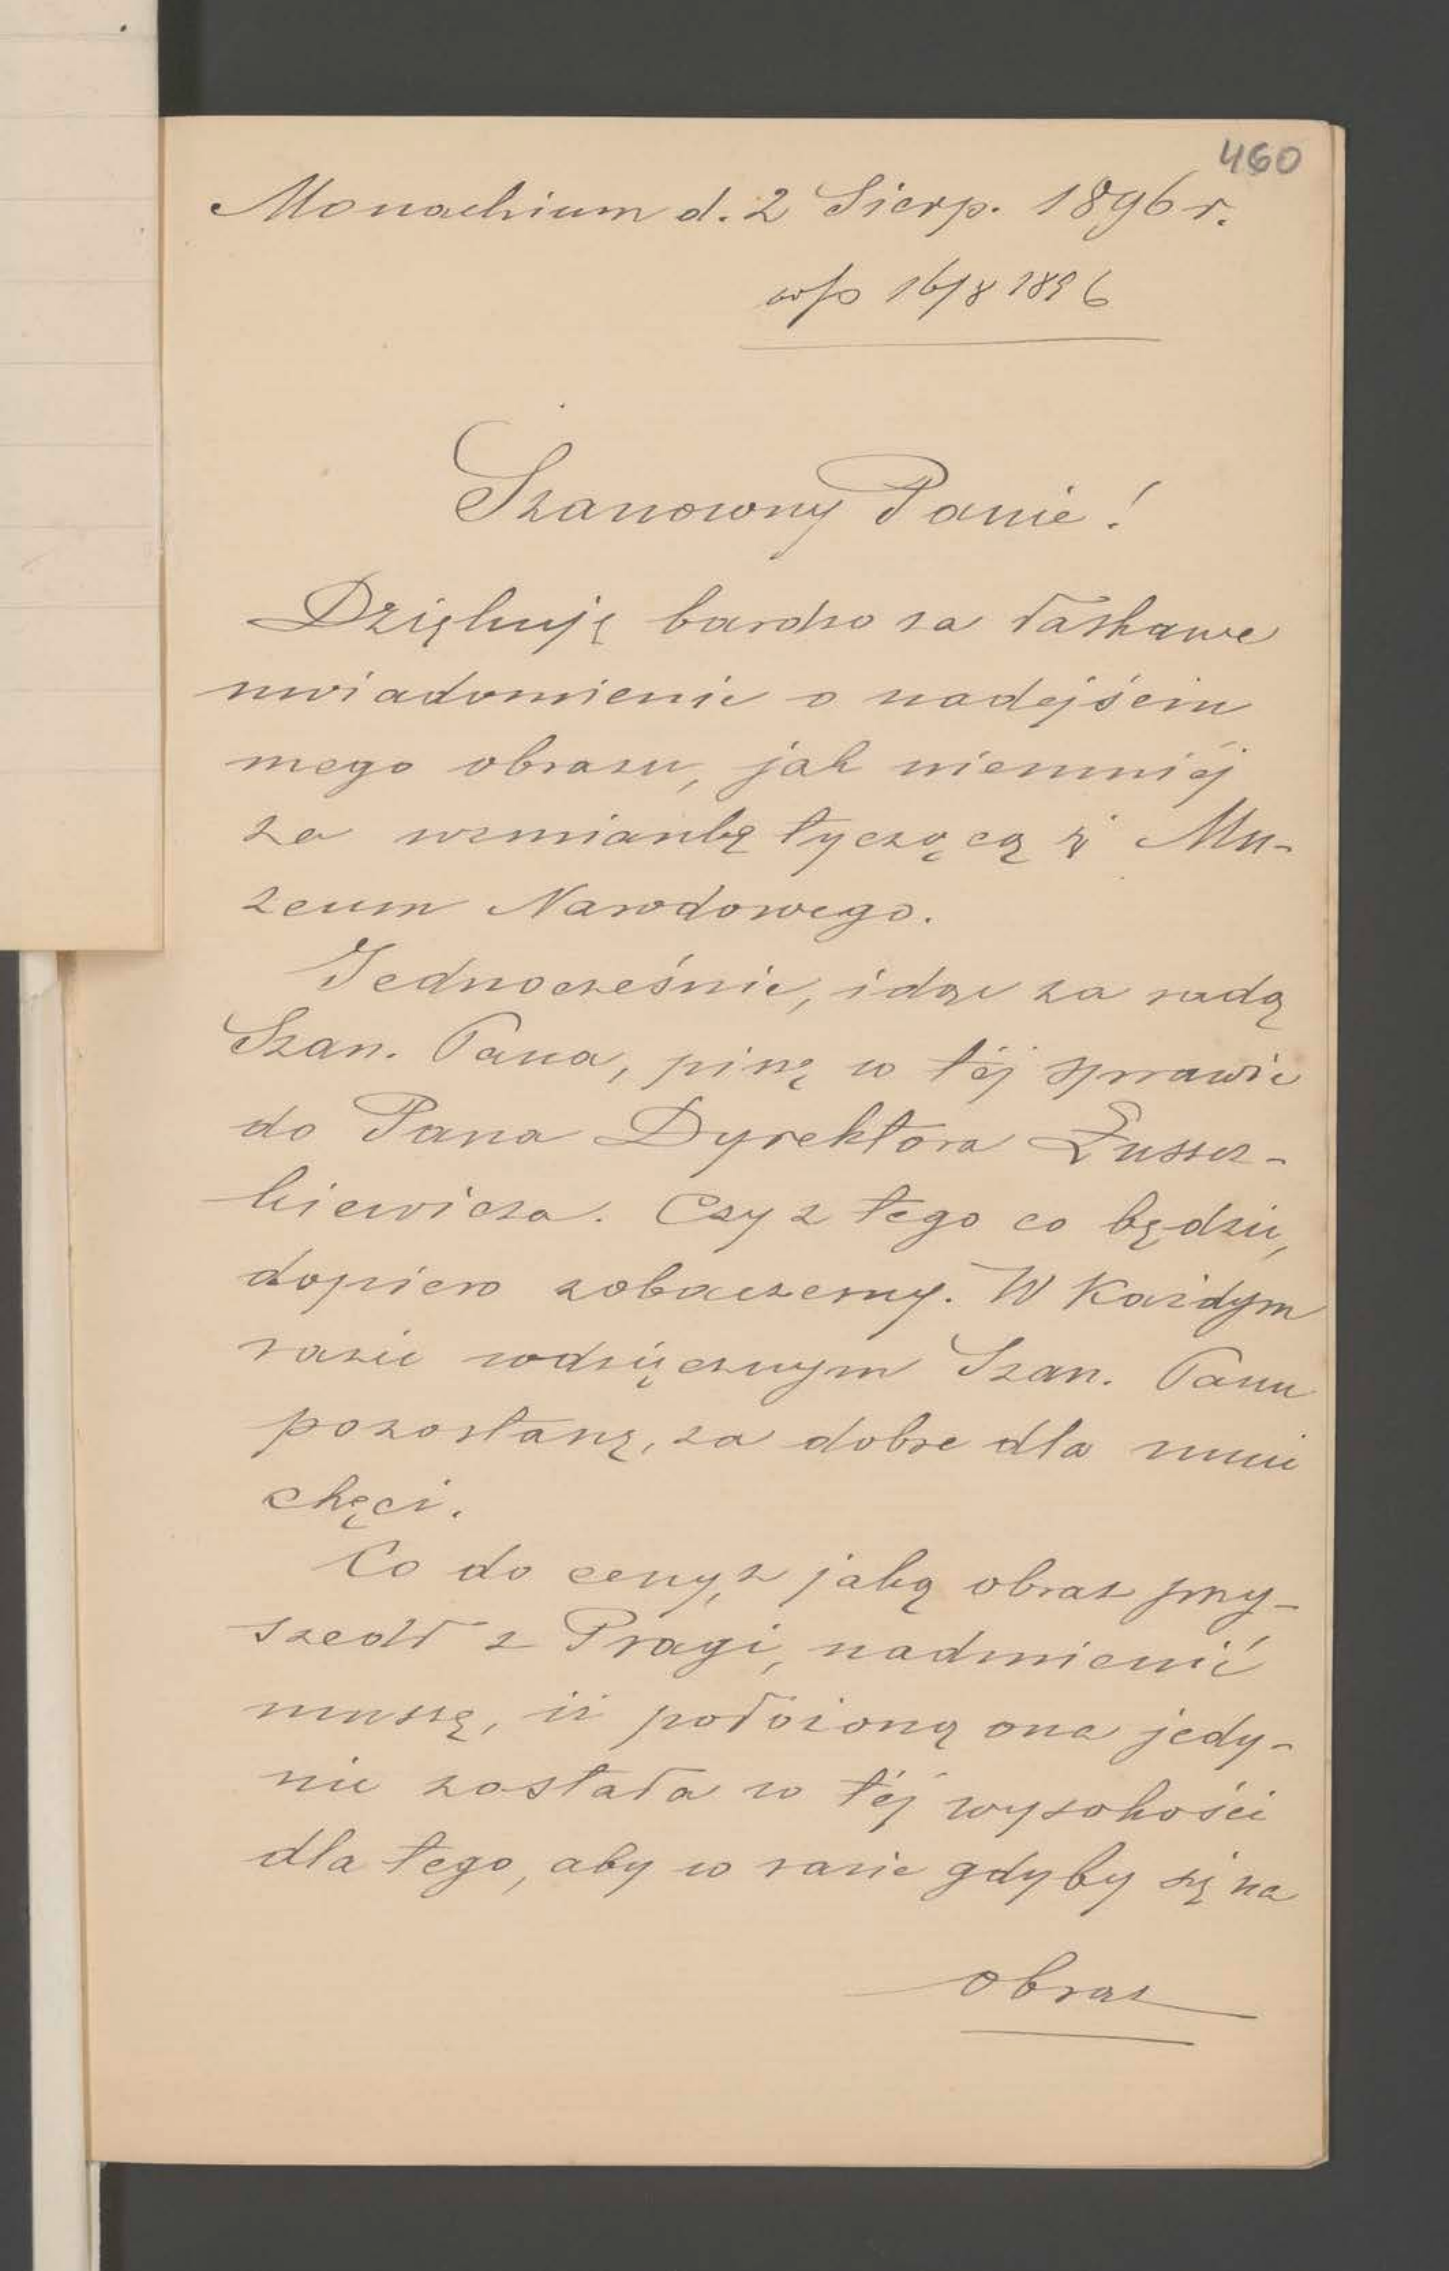 460
Monachium d. 2 Sierp. 1896 r.
16/8 1896
Szanowny Panie!
Dziękuję bardzo za łaskawe
uwiadomienie o nadejściu
mego obrazu, jak niemniéj
za wzmiankę tyczącą się Mu-
zeum Narodowego.
Jednocześnie, idąc za radą
Szan. Pana, piszę w téj sprawie
do Pana Dyrektora Łuszcz-
kiewicza. Czy z tego co będzie,
dopiero zobaczemy. W Każdym
razie wdzięcznym Szan. Panu
pozostanę, za dobre dla mnie
chęci.
Co do ceny, z jaką obraz przy-
szedł z Pragi, nadmienić
muszę, iż położoną ona jedy-
nie została w téj wysokości
dla tego, aby w razie gdyby się na
obraz